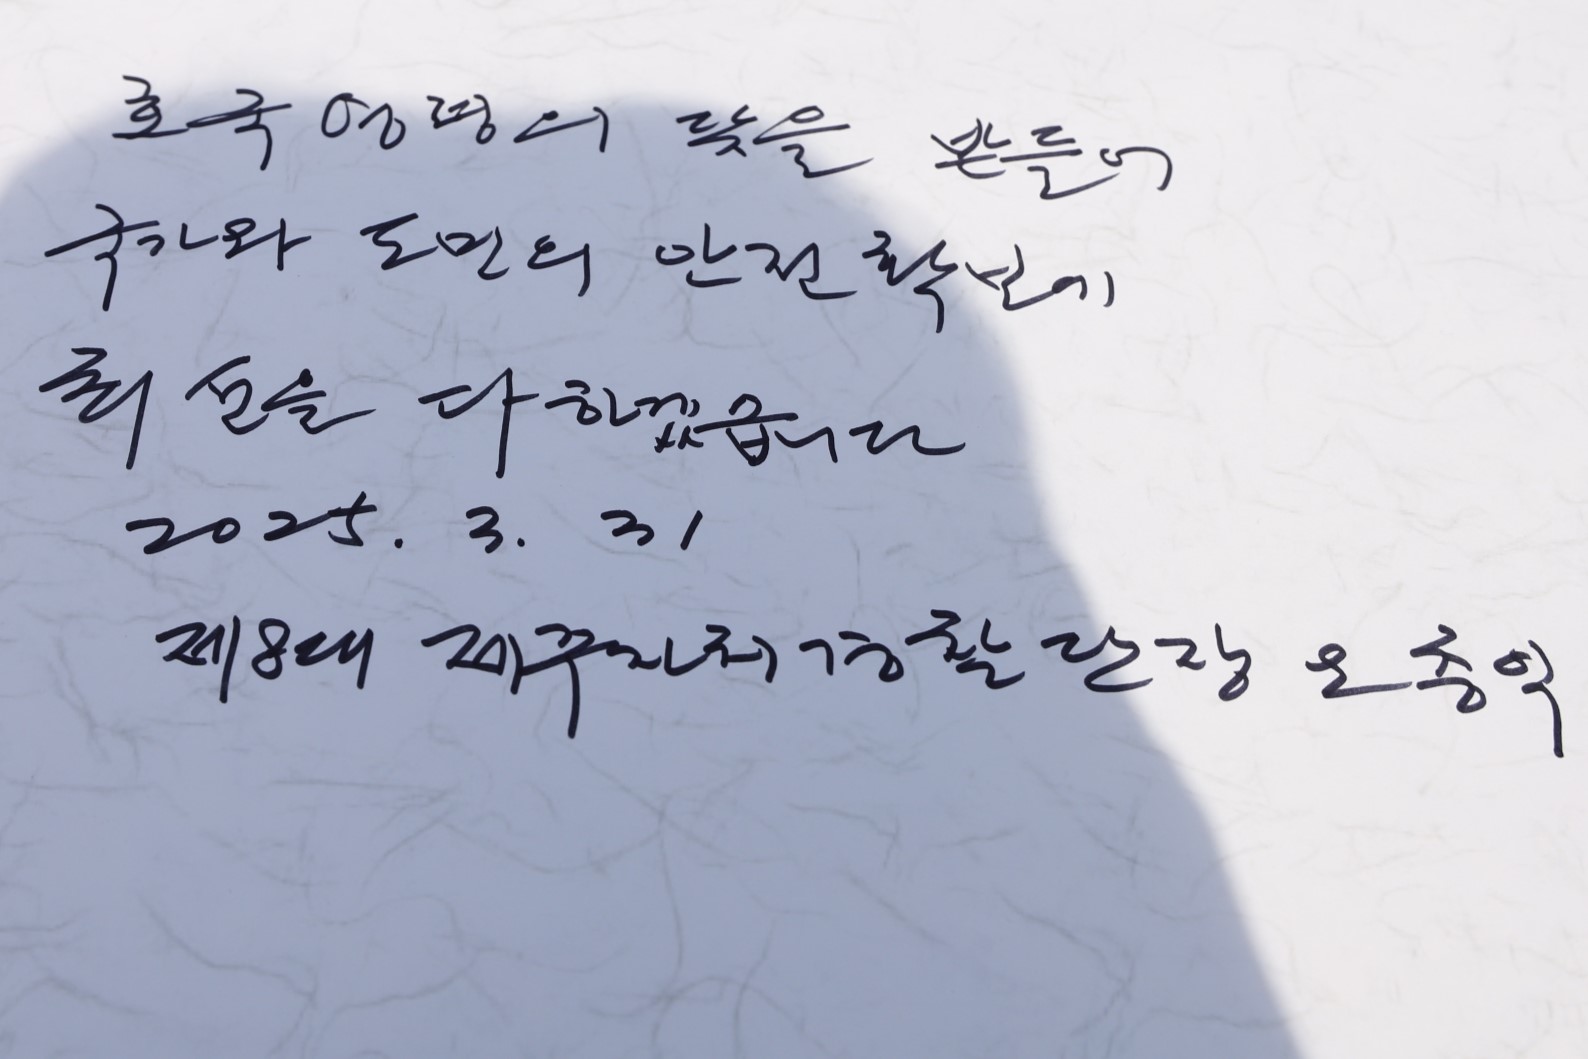 호국영령의 뜻을 받들어
국가와 도민의 안전 확보에
최선을 다하겠습니다
2025. 3. 31
제8대 제주자치경찰단장 오충익